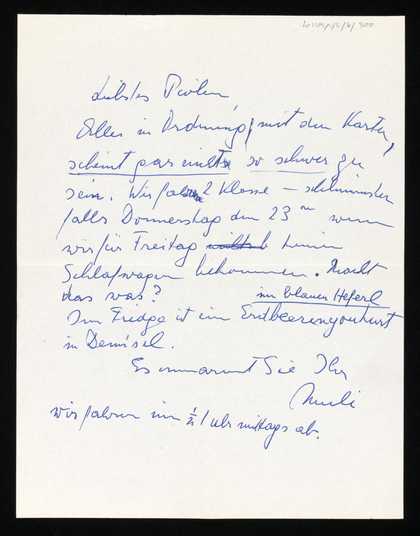 Liebstes
Alles in Ordnung, mit den Karten,
scheint gar nicht so schwer zu
sein. Wir fahren 2 Klasse – schlimmsten
falls Donnerstag den 23 wenn
wir für Freitag keinen
Schlafwagen bekommen. Macht
das was? im blauen Heferl
Im Fridge ist ein Erdbeerenyoghurt
in
Es umarmt Sie Ihr
wir fahren um ½ 1 Uhr mittags ab.